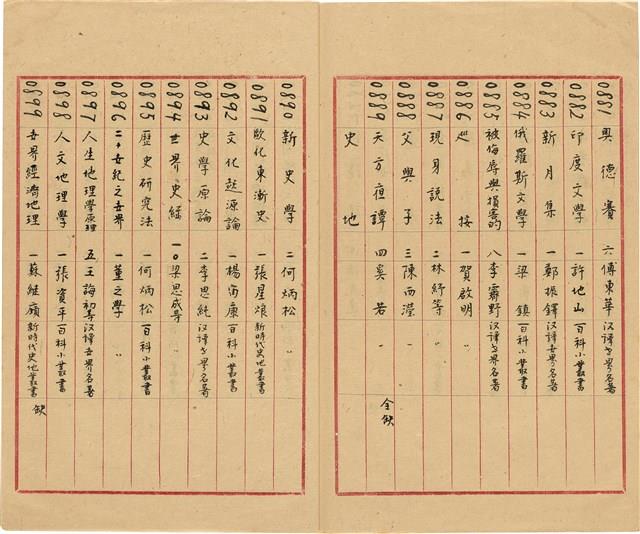 0881 奧德賽 六 傅東華 汉譯世界名著
0882 印度文學 一 許地山 百科小叢書
0883 新月集 一 鄭振鐸 汉譯世界名著
0884 俄羅斯文學 一 梁鎮 百科小叢書
0885 被侮辱與損害的 八 李霽野 汉譯世界名著
0886 巡按 一 賀啟明 〃
0887 現身說法 二 林紓等 〃
0888 父與子 三 陳西瀅 〃
0889 天方夜譚 四 奚若 〃 全缺
史地
0890 新史學 二 何炳松 〃
0891 歐化東漸史 一 張星烺 新時代史地叢書
0892 文化起源論 一 楊甯康 百科小叢書
0893 史學原論 二 李思純 汉譯世界名著
0894 世界史綱 一〇 梁思成等 〃
0895 歷史研究法 一 何炳松 百科小叢書
0896 二十世紀之世界 一 董之學 〃
0897 人生地理學原理 五 王誨初等 汉譯世界名著
0898 人文地理學 一 張資平 百科小叢書
0899 世界經濟地理 一 蘇繼廎 新時代史地叢書 缺